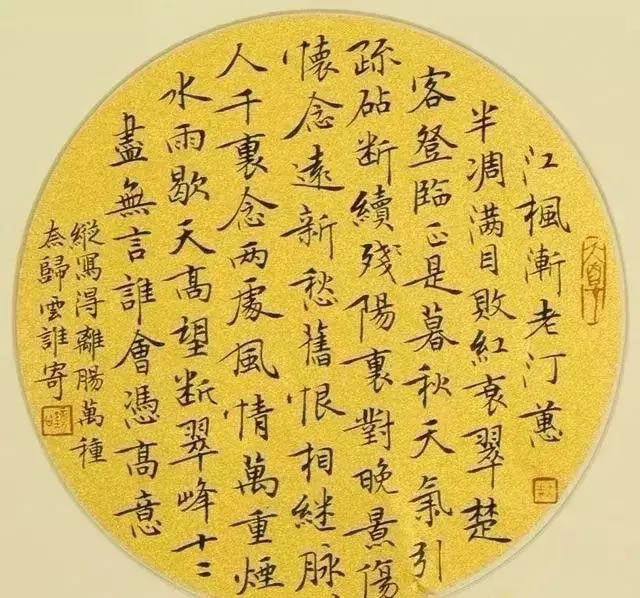 江楓漸老汀蕙
半凋满目敗紅衰翠楚
客登臨正是暮秋天氣引
疏砧断續殘陽裏對晚景傷
懷念遠新愁舊恨相継脉
人千裏念两處風情萬重煙
水雨歇天高望断翠峰十二
盡無言誰會憑高意
縱寫得離腸萬種
奈歸雲誰寄